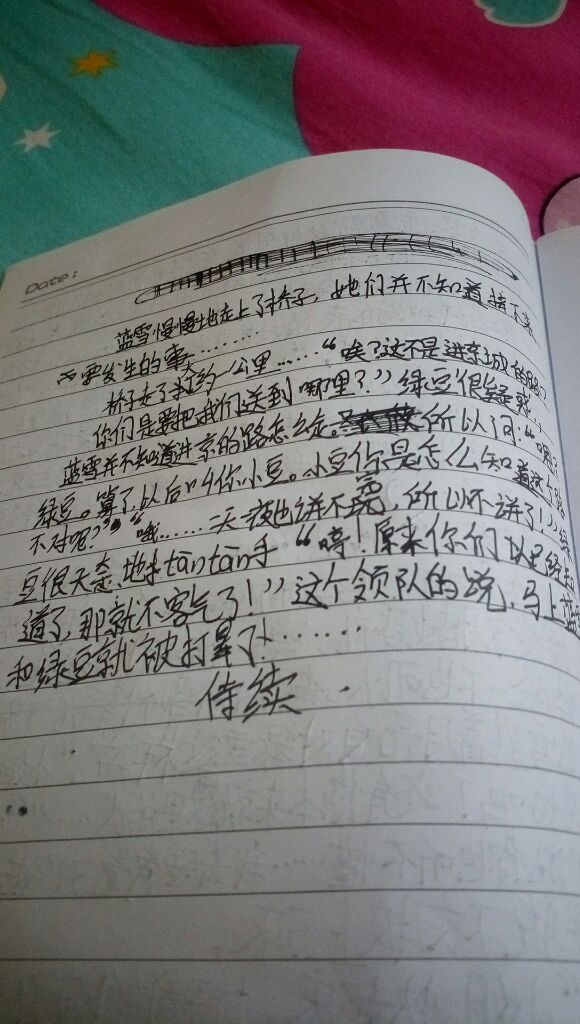 Date:
蓝雪慢慢地走上了桥子，她们并不知道接下来
要发生的事………
桥子走了打约一公里……“唉？这不是进京城的路？
你们是要把我们送到哪里？”绿豆很疑惑…
蓝雪并不知道进京的路怎么走。所以问：“
绿豆。算了以后叫你小豆。小豆你是怎么知道这个路
不对呢？”“哦……一天一夜也讲不完，所以不讲了！”
豆很天奈地tāntān手“哼！原来你们以经知
道了，那就不客气了！”这个领队的说，马上蓝
和绿豆就被打晕了………
侍续